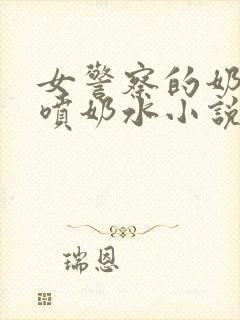 女警察的奶
噴奶水小說
瑞恩